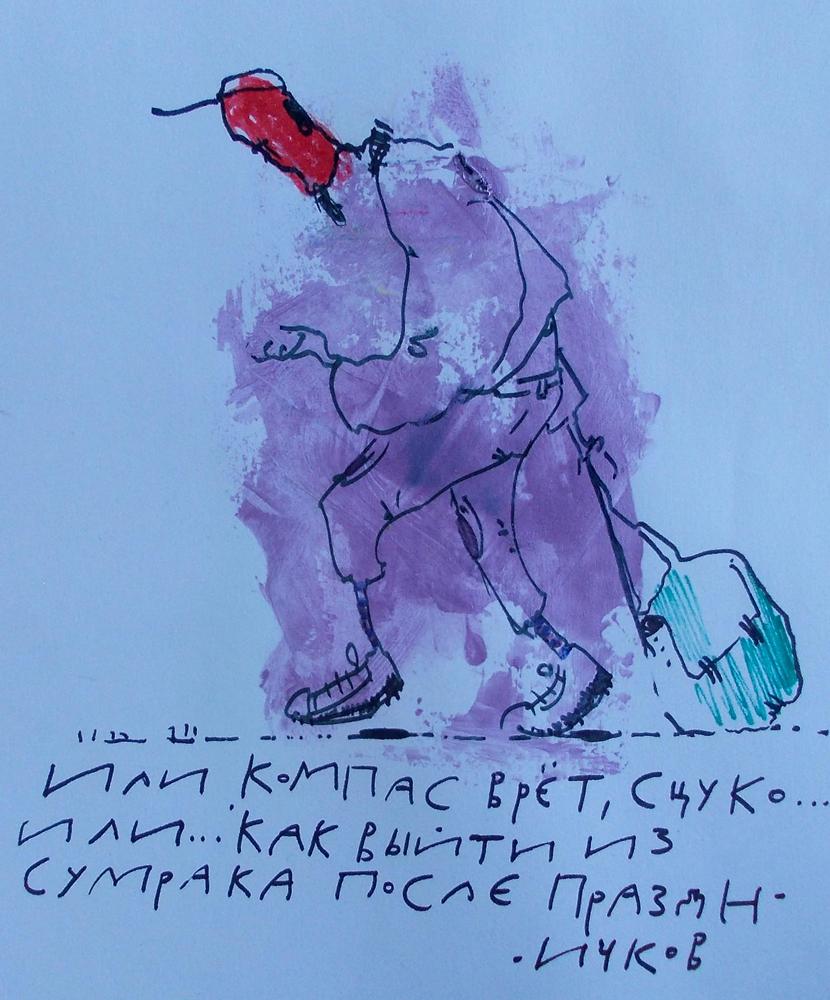 ИЛИ КОМПАС ВРЁТ, СЦУКО...
ИЛИ... КАК ВЫЙТИ ИЗ
СУМРАКА ПОСЛЕ ПРАЗДН-
-ИЧКОВ